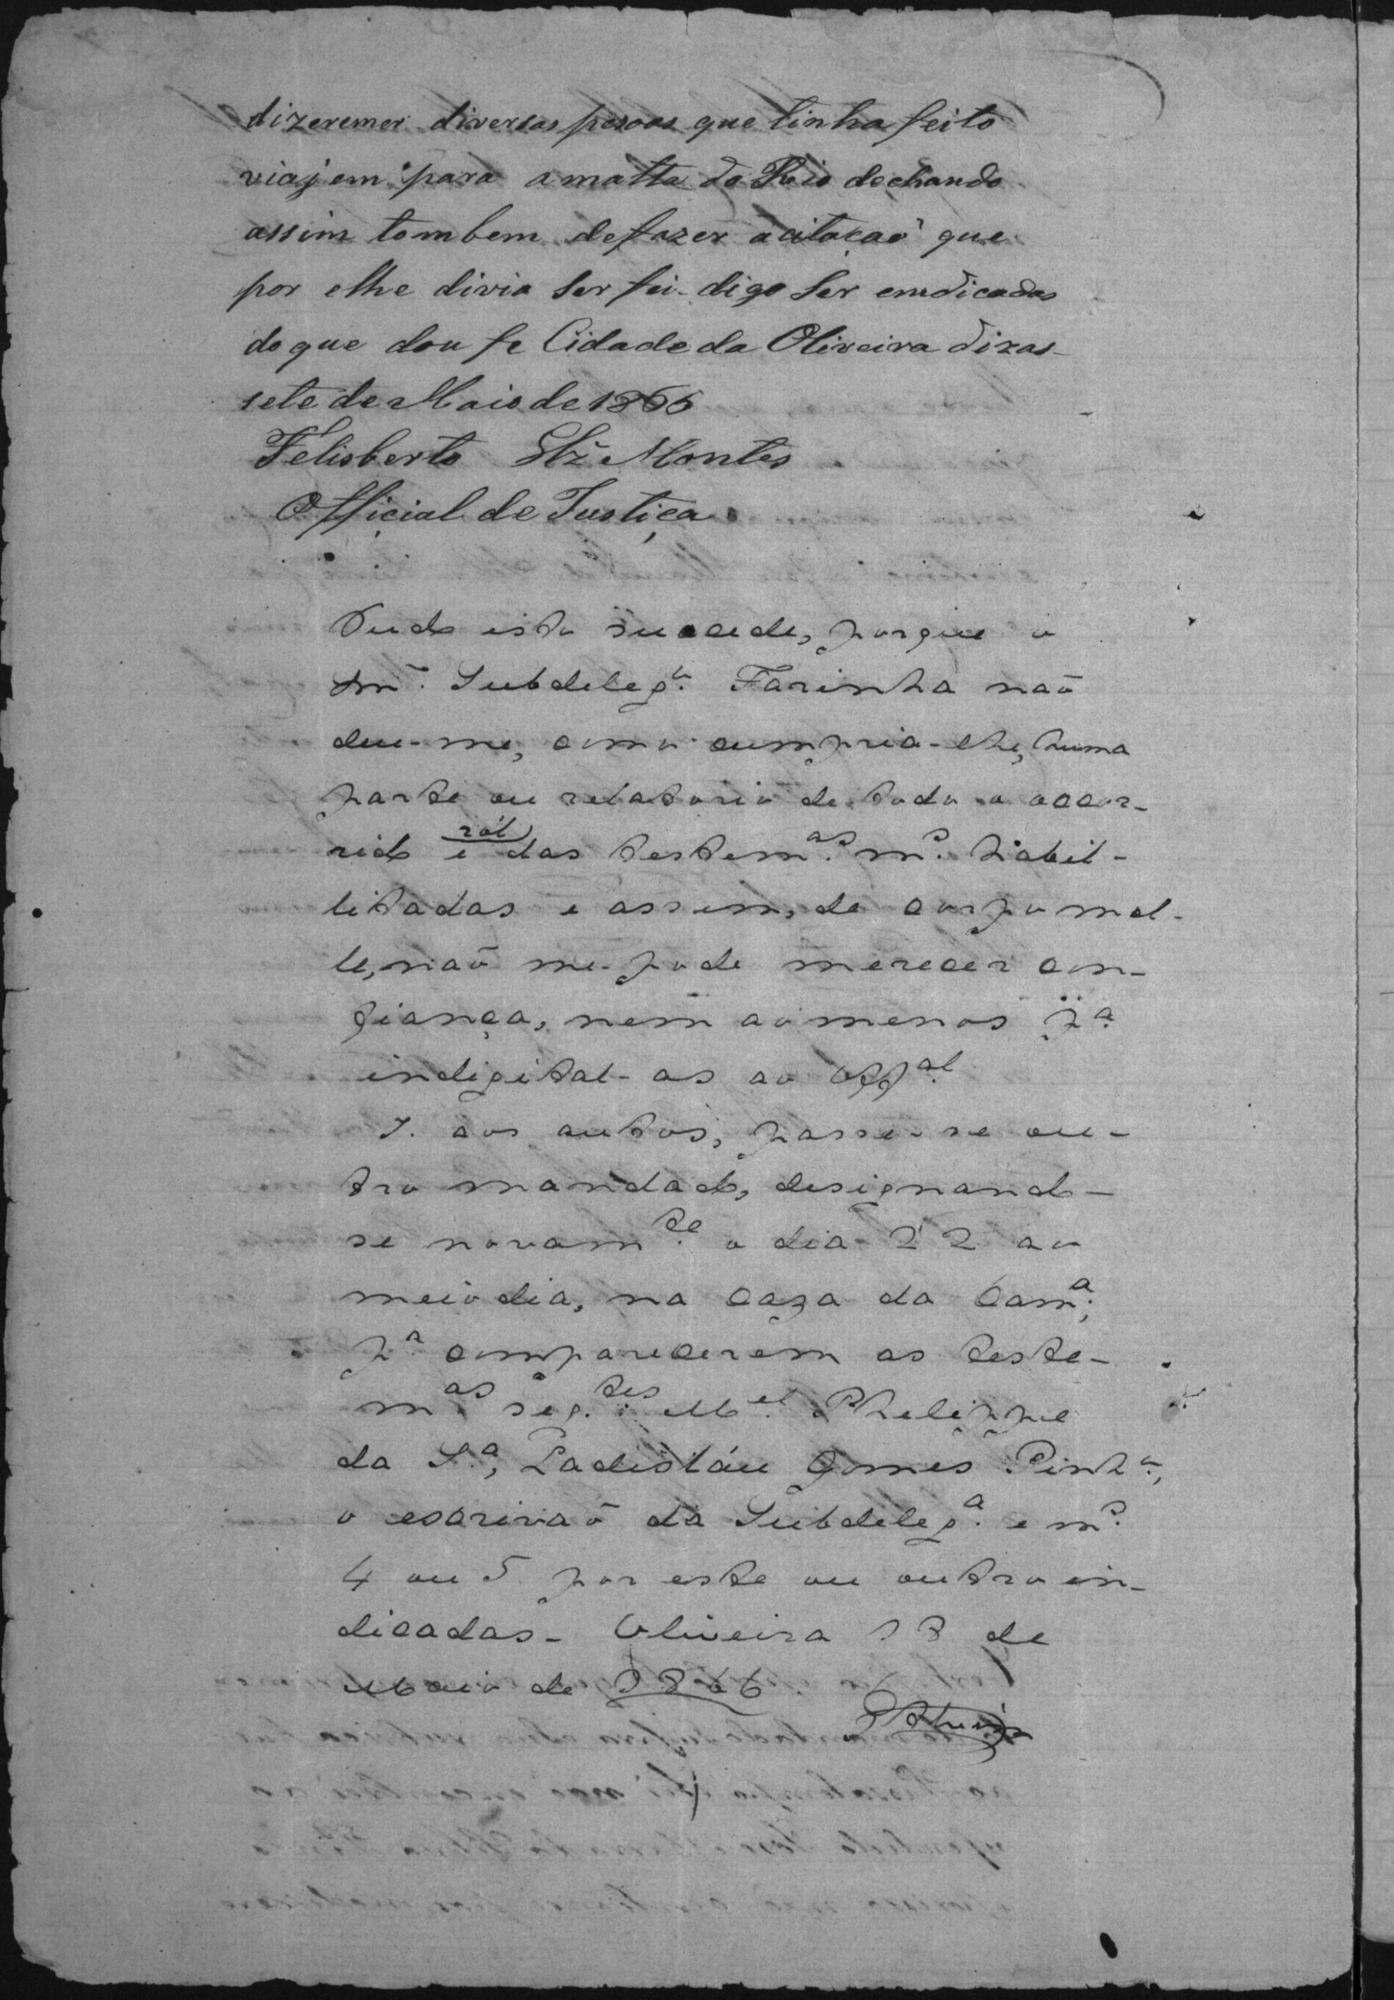 dizeremer diversas pesoas que tinha feito
viajem para amatta do Rio dechando
assim tombem defazer acitacaõ que
por elhe divia ser fei- digo ser emdicadas
doque dou fe Cidade da Oliveira dizas-
sete de Maio de 1866
Felisberto Glz Montes
Official de Justiça
Tudo isto succede, porque o
mmº. Subdelegº. Farinha naõ
deu-me, como cumpria-lhe, huma
parte ou relatorio de todo o occor-
rido e ról das testemas. ms. habil-
litadas e assim, de corpo mol-
le, naõ me-pode merecer con-
fiança, nem aomenos pª.
indigital-as ao Offal.
J. aos autos, passe-se ou-
tro mandado, designando-
se novamte. o dia 22 ao
meio dia, na caza da Camª.,
pª comparecerem as teste-
mas segtes: Mel. Phelippe
da Sª., Ladisláu Gomes Pinhº.,
o escrivaõ da Subdelegª. e ms.
4 ou 5 por este ou outro in-
dicadas - Oliveira 18 de
Maio de 1866.